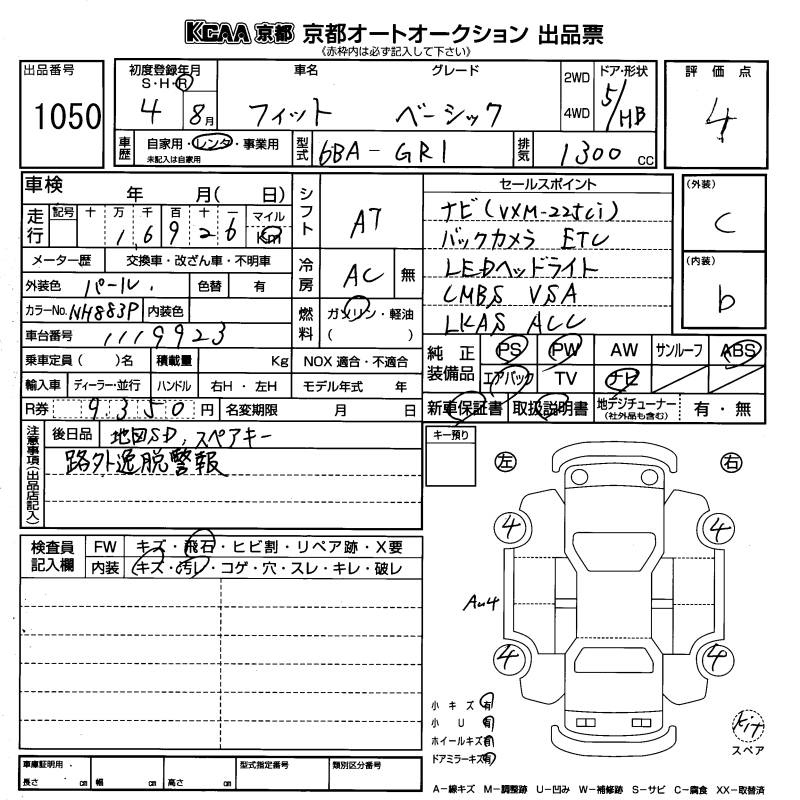 KCAA 京都 京都オートオークション 出品票
《赤枠内は必ず記入して下さい》
出品番号
1050
初度登録年月
S・H・R
4 8月
車名 グレード
フィット ベーシック
2WD
4WD
ドア・形状
5/HB
評価点
4
車歴
自家用・レンタ・事業用
未記入は自家用
型式
6BA-GR1
排気
1300 cc
車検 年 月( 日)
走行
記号 十 万 千 百 十 一
1 6 9 2 6
マイル
Km
メーター歴 交換車・改ざん車・不明車
外装色 パール 色替 有
カラーNo. NH883P 内装色
車台番号 1119923
乗車定員( )名 積載量 Kg
輸入車 ディーラー・並行 ハンドル 右H・左H
R券 9350円 名変期限 月 日
シフト AT
冷房 AC 無
燃料 ガソリン・軽油
( )
NOX 適合・不適合
モデル年式 年
セールスポイント
ナビ(VXM-225Ci)
バックカメラ ETC
LEDヘッドライト
CMBS VSA
LKAS ACC
(外装)
C
(内装)
b
純正装備品
PS PW AW サンルーフ ABS
エアバック TV ナビ
新車保証書 取扱説明書 地デジチューナー
(社外品も含む)
有・無
注意事項(出品店記入)
後日品 地図SD,スペアキー
路外逸脱警報
キー預り
左 右
検査員記入欄
FW キズ・飛石・ヒビ割・リペア跡・X要
内装 キズ・汚レ・コゲ・穴・スレ・キレ・破レ
4 4
4 4
小キズ 有
小U 有
ホイールキズ 有
ドアミラーキズ 有
kit
スペア
車庫証明用・
長さ cm 幅 cm 高さ cm
型式指定番号
類別区分番号
A−線キズ M−調整跡 U−凹み W−補修跡 S−サビ C−腐食 XX−取替済